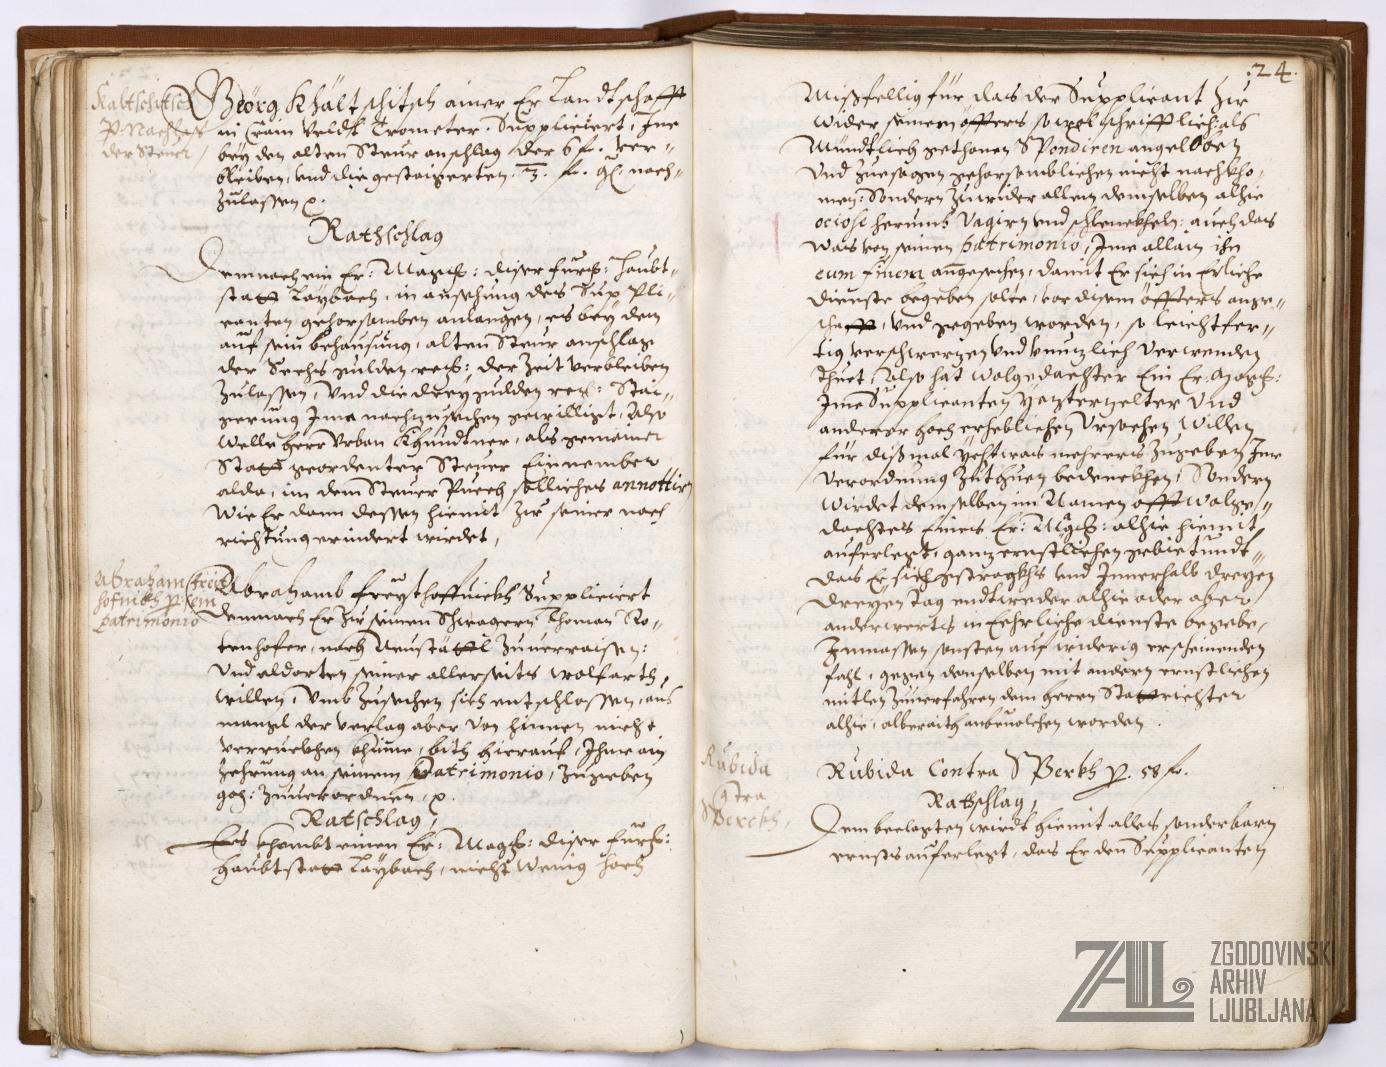 Kaltschitsch
P. Nachlaß
der Steur /
Geörg Khältschitsch ainer Er: Landtschafft
in Crain Veldt Trometer. Suppliciert, Ime
bey den alten Steur anschlag der 6 f. ver-
bleiben, und die gestaigerten 3. f. gl. nach-
Zulassen p.
Rathschlag
Demnach ein Er: Magist: diser fürst: Haubt-
statt Laybach, in ansehung des Suppli-
canten gehorsamben anlangen, es bey dem
auf sein behausung, alten Steur anschlag
der Sechs gulden rest: der Zeit verbleiben
Zulassen, Und die drey gulden rest: Stai-
gerung Ime nachzusehen gewilligt, Also
welle herr Urban Khundtner, als gemainer
Statt geordenter Steuer Einnember
alda, in dem Steuer Puech solliches annottirn
Wie Er dann dessen hiemit Zu seiner nach
richtung erindert wirdet,
Abraham freit
hofnikh P. sein
patrimonio
Abrahamb freythoffnickh Suppliciert
demnach Er Zu seinen Schwagern Thoman Ro-
tenhofer, nach Neustättl Zuverraisen:
Und aldorten seiner allerseits wolfarth,
willen, Umb Zusehen sich entschlossen, aus
mangl der verlag aber von hinnen nicht
verruckhen khünne, bith hierauf, Ihme ain
Zehrung an seinem Patrimonio, Zugeben
gst: Zuverordnen, p.
Ratschlag,
Es khombt einem Er: Magist: diser fürst:
haubtstatt Laybach, nicht wenig hoch
:24.
Mißfellig für das der Supplicant Zu
wider seinem öffters sowol schrifftlich: als
Mündtlich gethanen Spondiren angeloben
Und Zuesagen gehorsamblichen nicht nachkho-
men: Sondern Zuwider allem demselben alhie
ociose herumb Vagirn und schlenckheln: auch das
was von seinen patrimonio, Ime allain in
eum finem angesechen, damit Er sich in Ehrliche
dienste begeben solte, vor disem öffters ange-
schafft, und gegeben worden, so leichtfer-
tig verschwenden und unnuzlich verwenden
thuet, Also hat wolgedachter Ein Er: Magist:
Ime Supplicanten yezterzelter Und
anderer hoch erheblichen Ursachen willen
für dißmal yehtwas mehrers Zugeben Ime
verordnung Zuthuen bedenckhen, Sondern
wirdet demselben im Namen offt wolge-
dachtes Eines Er: Magist: alhie hiemit
auferlegt, ganz ernstlichen gebietundt
das Er sich gestragkhs und Innerhalb dreyen
dreyen Tag endtweder alhie oder aber
anderwerts in Eehrliche dienste begebe,
Inmassen sonsten auf widerig erscheinenden
fahl, gegen demselben mit andern ernstlichen
mitlen Zuverfahren dem herrn Stattrichter
alhie, alberaith anbevolchen worden.
Rubida
Contra
SPerckh,
Rubida Contra SPerkh P. 58 f.
Rathschlag,
Dem beclagten wirdt hiemit alles sonderbarn
ernsts auferlegt, das Er den Supplicanten
ZAL
ZGODOVINSKI
ARHIV
LJUBLJANA